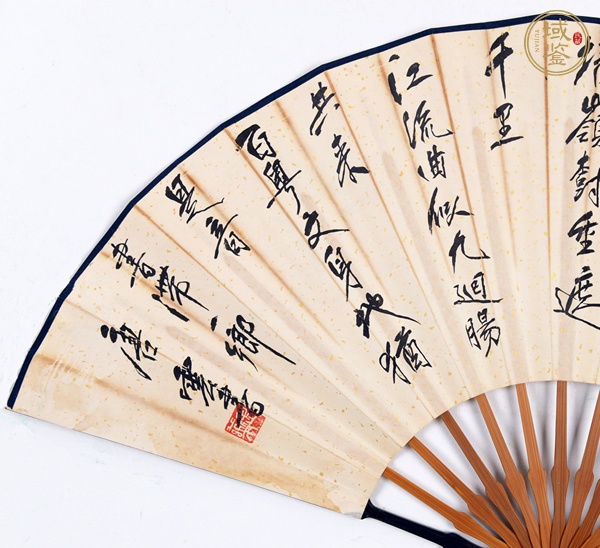 嶺樹重遮
千里
江流曲似九迴腸
共来
百粵文身地猶
是音
書滞一鄉
唐雲書
域鉴
YUJIAN